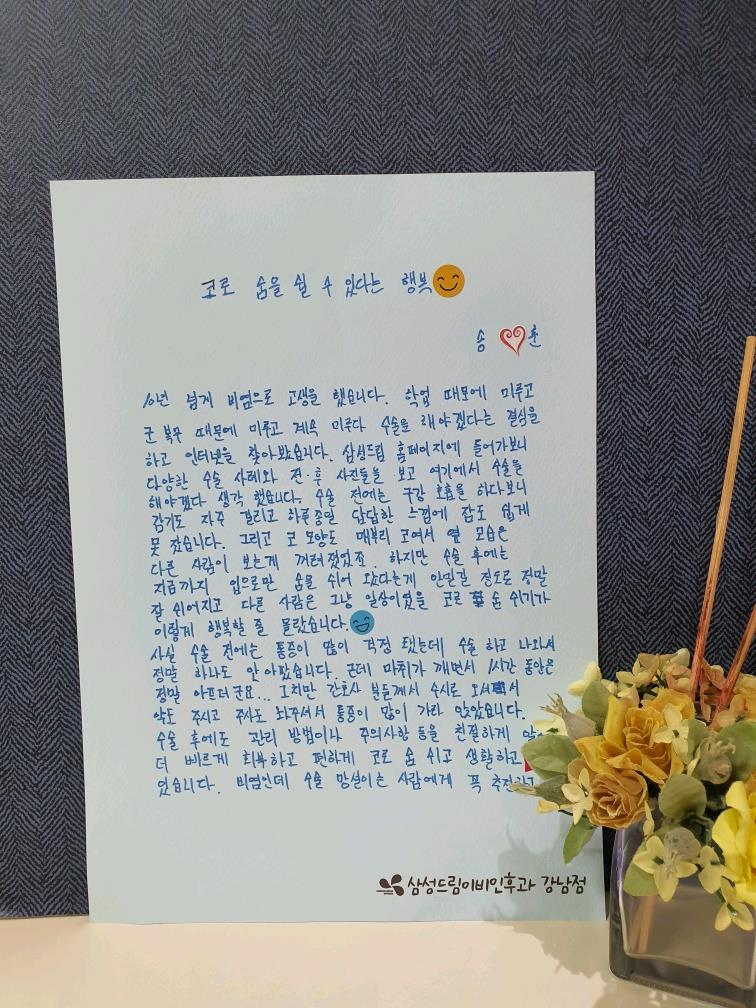 코로 숨을 쉴 수 있다는 행복
송 춘
10년 넘게 비염으로 고생을 했습니다. 학업 때문에 미루고
군 복무 때문에 미루고 계속 미루다 수술을 해야겠다는 결심을
하고 인터넷을 찾아봤습니다. 삼성드림 홈페이지에 들어가보니
다양한 수술 사례와 전·후 사진들을 보고 여기에서 수술을
해야겠다 생각 했습니다. 수술 전에는 구강 호흡을 하다보니
감기도 자주 걸리고 하루종일 답답한 느낌에 잠도 쉽게
못 잤습니다. 그리고 코 모양도 매부리 코여서 옆 모습은
다른 사람이 보는게 꺼려졌었죠. 하지만 수술 후에는
지금까지 입으로만 숨을 쉬어 왔다는게 안믿길 정도로 정말
잘 쉬어지고 다른 사람은 그냥 일상이었을 코로 숨 쉬기가
이렇게 행복할 줄 몰랐습니다.
사실 수술 전에는 통증이 많이 걱정 됐는데 수술 하고 나와서
정말 하나도 안 아팠습니다. 근데 마취가 깨면서 1시간 동안은
정말 아프더군요... 그치만 간호사 분들께서 수시로 오셔서
약도 주시고 주사도 놔주셔서 통증이 많이 가라 앉았습니다.
수술 후에도 관리 방법이나 주의사항 등을 친절하게
더 빠르게 회복하고 편하게 코로 숨 쉬고 생활하고
있습니다. 비염인데 수술 망설이는 사람에게 꼭
삼성드림이비인후과 강남점